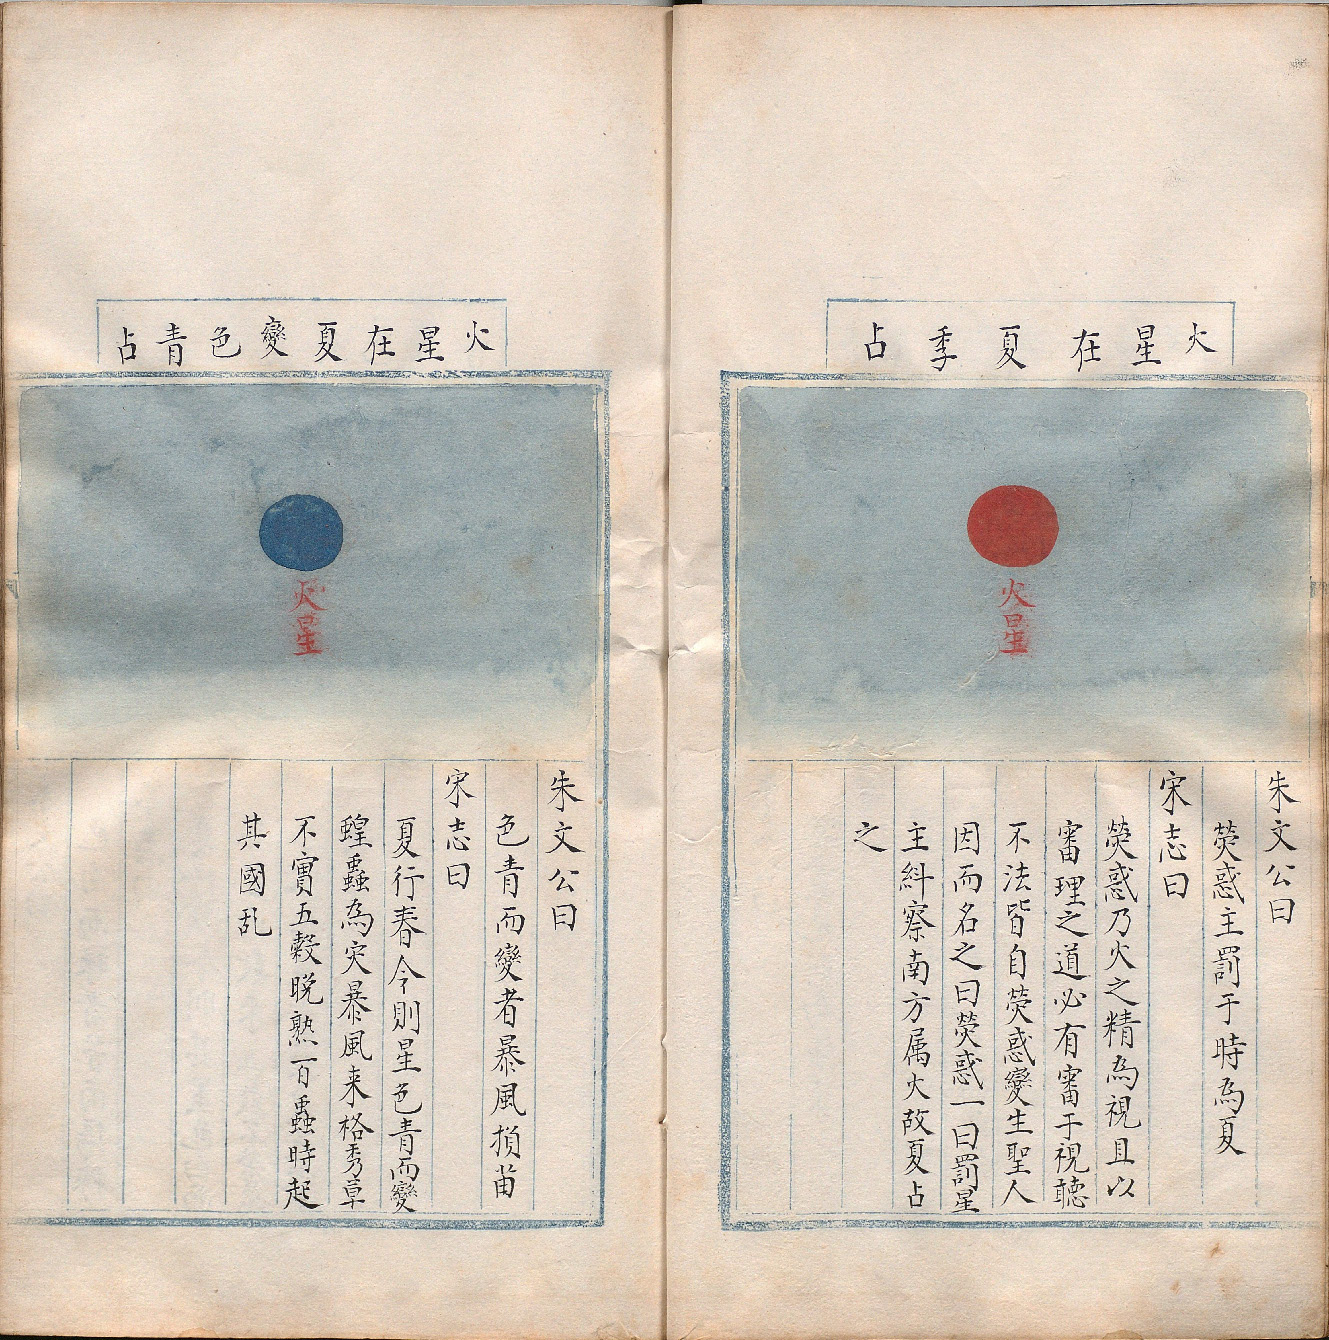 火星在夏季占
火星
朱文公曰
熒惑主罰于時為夏
宋志曰
熒惑乃火之精為視且以
審理之道必有審于視聽
不法皆自熒惑變生聖人
因而名之曰熒惑一曰罰星
主糾察南方属火故夏占
之
火星在夏變色青占
火星
朱文公曰
色青而變者暴風損苗
宋志曰
夏行春令則星色青而變
蝗蟲為灾暴風来格秀草
不實五榖晚熟百螽時起
其國乱